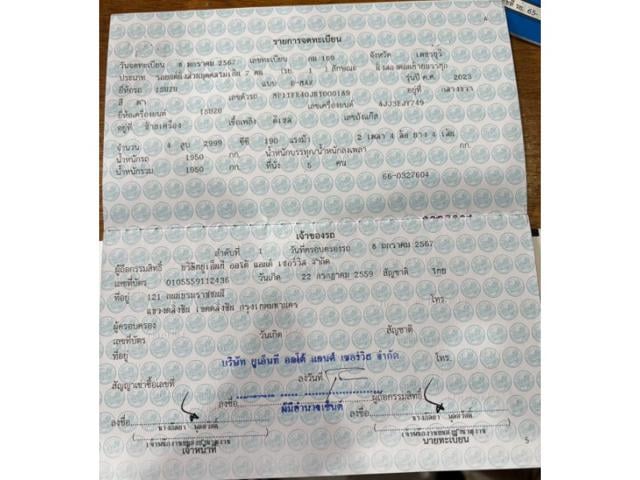 รายการจดทะเบียน
วันจดทะเบียน 8 มกราคม 2567 เลขทะเบียน กม 169 จังหวัด เพชรบุรี
ประเภท รถยนต์นั่งส่วนบุคคลไม่เกิน 7 คน (รย 1 ) ลักษณะ
ยี่ห้อรถ ISUZU แบบ D-MAX รุ่นปี ค.ศ. 2023
สี ดำ เลขตัวรถ อยู่ที่ กลางขวา
ยี่ห้อเครื่องยนต์ ISUZU เลขเครื่องยนต์ 4JJ3EJY749
อยู่ที่ ซ้ายเครื่อง เชื้อเพลิง ดีเซล เลขถังแก๊ส
จำนวน 4 สูบ 2999 ซีซี 190 แรงม้า 2 เพลา 4 ล้อ ยาง 4 เส้น
น้ำหนักรถ 1950 กก. น้ำหนักบรรทุก/น้ำหนักลงเพลา กก.
น้ำหนักรวม 1950 กก. ที่นั่ง 5 คน
66-0327604
เจ้าของรถ
ลำดับที่ 1 วันที่ครอบครองรถ 8 มกราคม 2567
ผู้ถือกรรมสิทธิ์ บริษัทยูเอ็นที ออโต้ แอนด์ เซอร์วิส จำกัด
เลขที่บัตร 0105559112436 วันเกิด 22 กรกฎาคม 2559 สัญชาติ ไทย
ที่อยู่ 121 ถนนบรมราชชนนี โทร.
แขวงตลิ่งชัน เขตตลิ่งชัน กรุงเทพมหานคร
ผู้ครอบครอง
เลขที่บัตร วันเกิด สัญชาติ
ที่อยู่ โทร.
บริษัท ยูเอ็นที ออโต้ แอนด์ เซอร์วิส จำกัด
สัญญาเช่าซื้อเลขที่ ลงวันที่
ลงชื่อ ผู้ถือกรรมสิทธิ์
ผู้มีอำนาจเซ็นต์
ลงชื่อ ลงชื่อ
เจ้าหน้าที่ นายทะเบียน
5